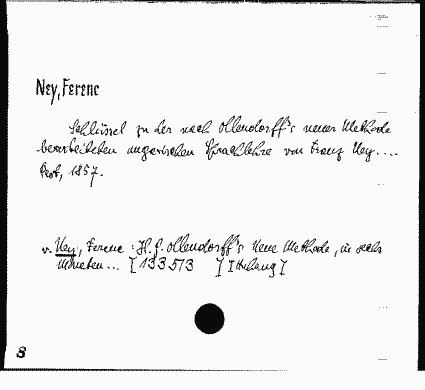 Ney, Ferenc
Schlüssel zu der nach Ollendorff's neuer Methode
bearbeiteten ungarischen Sprachlehre von Franz Ney....
Pest, 1857.
v. Ney, Ferenc: H. G. Ollendorff's Neue Methode, in sechs
Monaten... [133.513 ] [Anhang]
8